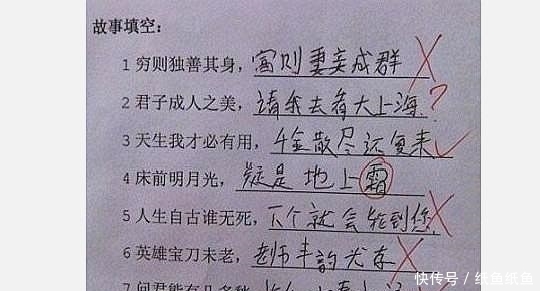 故事填空：
1 穷则独善其身，富则妻妾成群
2 君子成人之美，请我去看大上海。?
3 天生我才必有用，千金散尽还复来
4 床前明月光，疑是地上霜
5 人生自古谁无死，下个就会轮到您
6 英雄宝刀未老，老师丰韵尤存
7 问君能有几多愁
快传号 / 纸鱼纸鱼